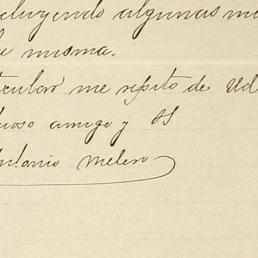 cluyendo algunas me
misma.
ticular me repito de Ud
uoso amigo y SS
Antonio Melero